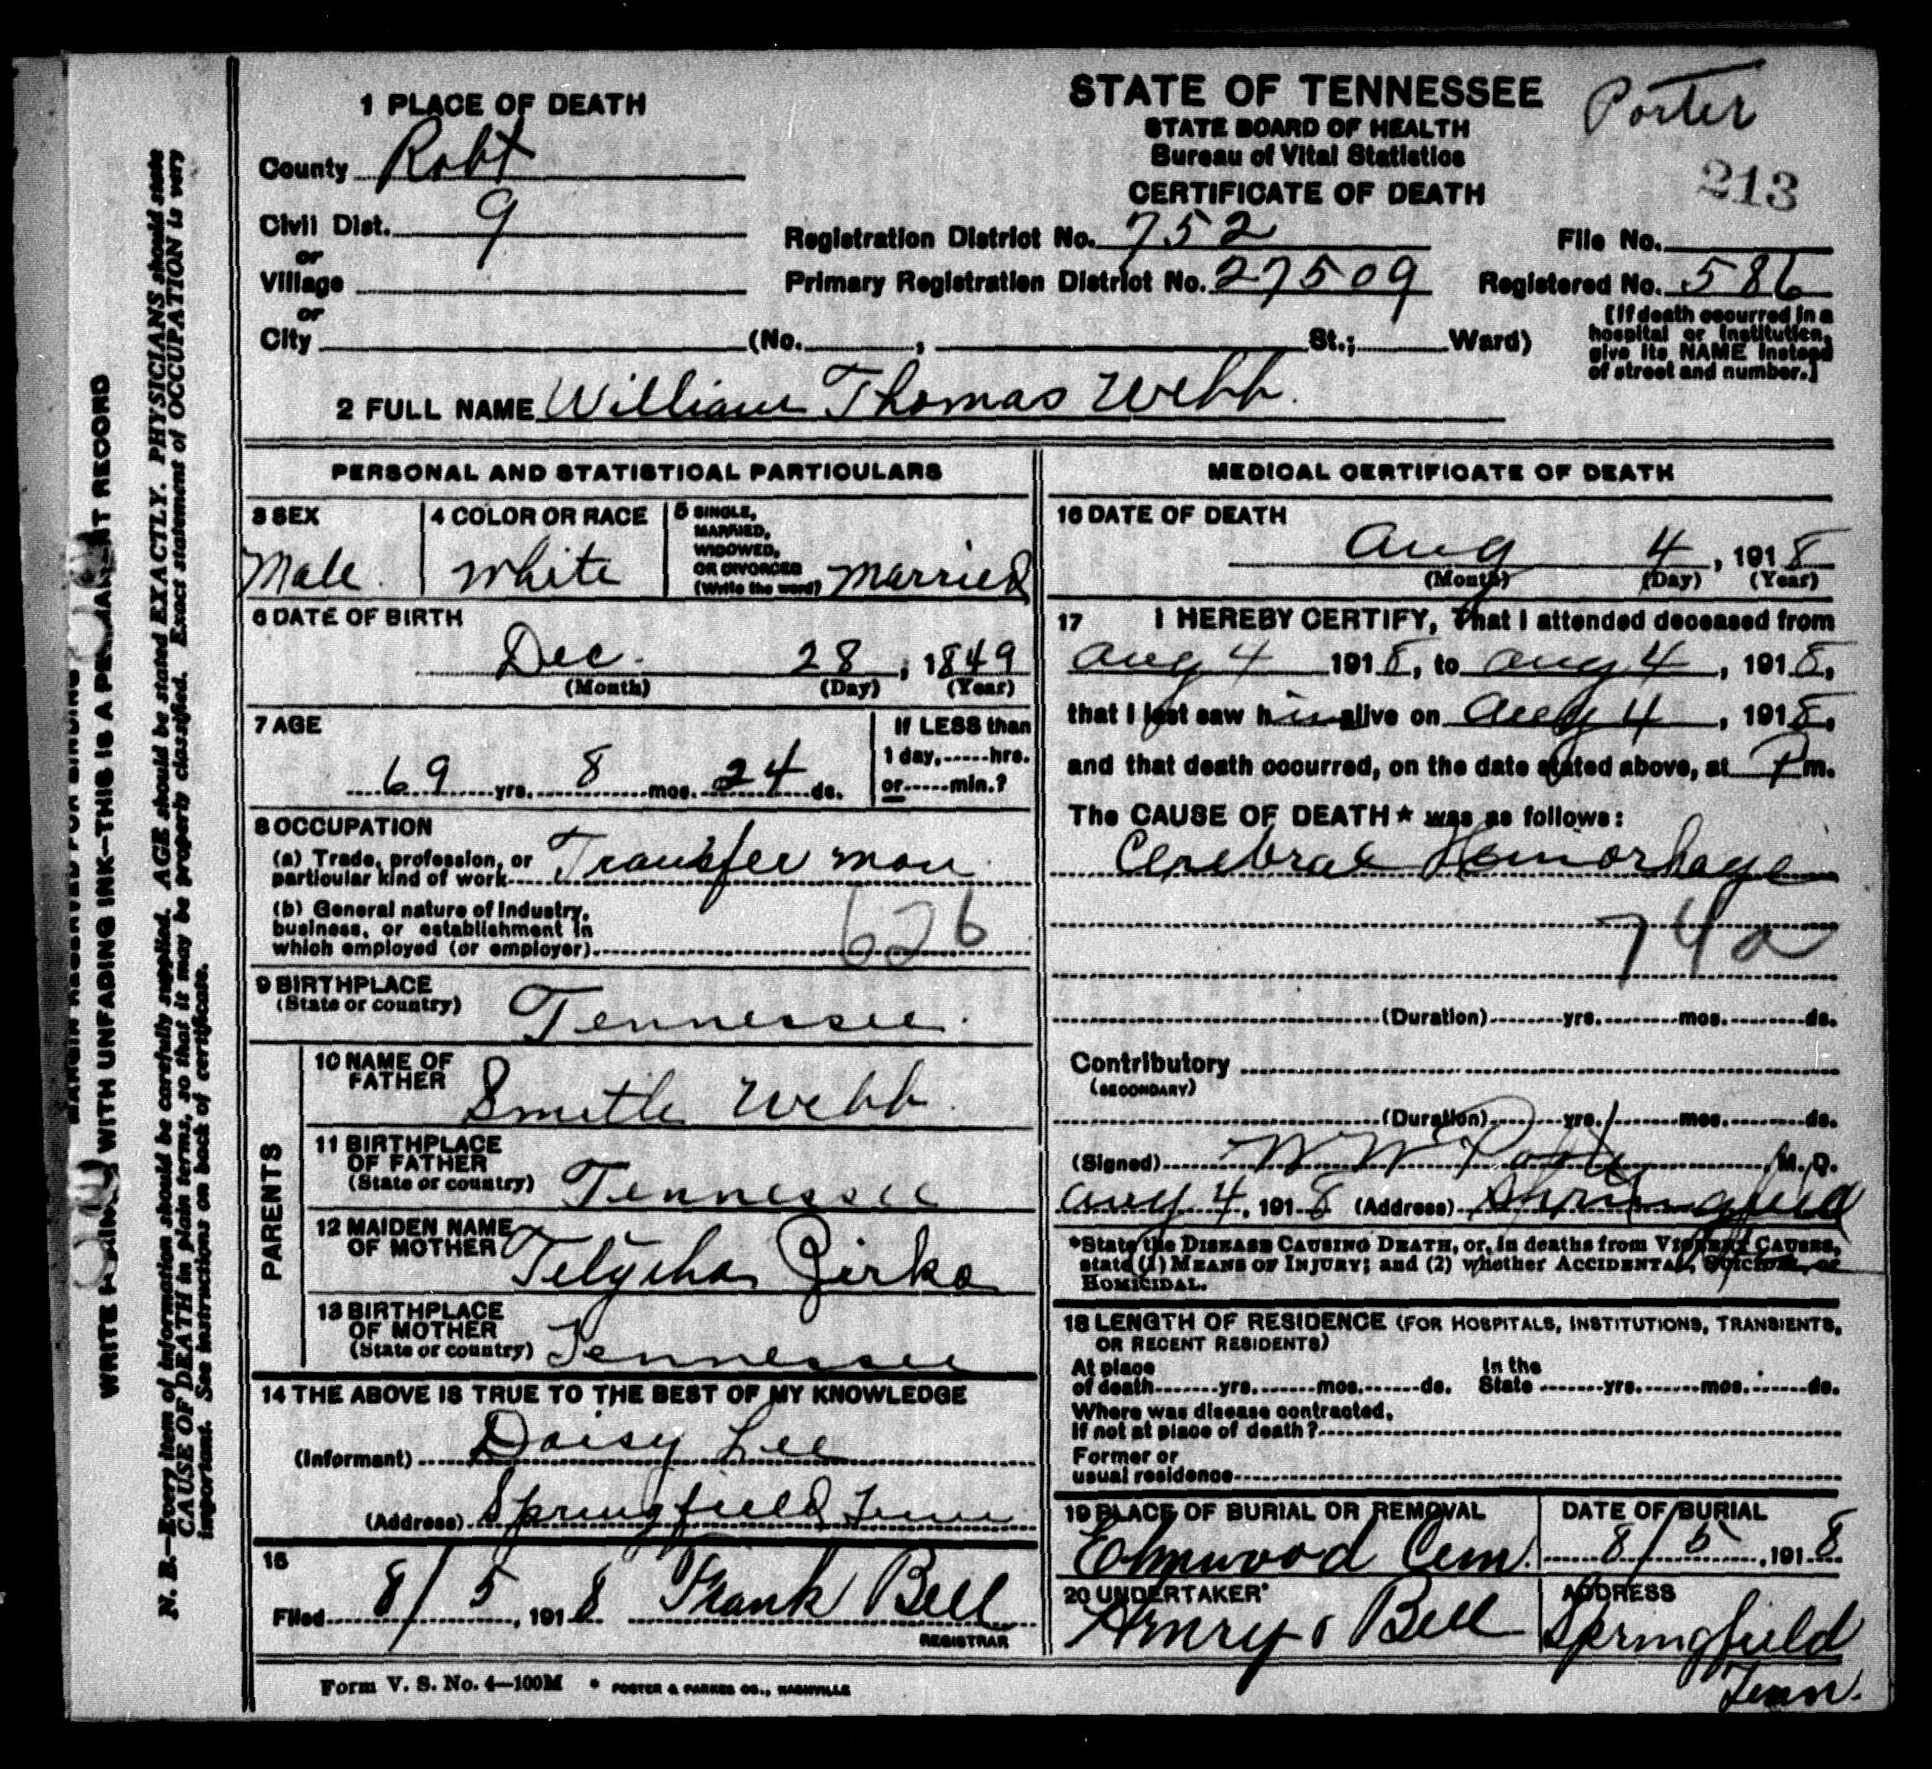 1 PLACE OF DEATH
County Robt
Civil Dist. 9
or
Village
or
City (No. , St.; Ward)
STATE OF TENNESSEE
STATE BOARD OF HEALTH
Bureau of Vital Statistics
CERTIFICATE OF DEATH
Porter
213
Registration District No. 752 File No.
Primary Registration District No. 27509 Registered No. 586
[If death occurred in a
hospital or Institution,
give its NAME instead
of street and number.]
2 FULL NAME William Thomas Webb.
PERSONAL AND STATISTICAL PARTICULARS
3 SEX
Male
4 COLOR OR RACE
White
5 SINGLE,
MARRIED,
WIDOWED,
OR DIVORCED
(Write the word) Married
6 DATE OF BIRTH
Dec. 28, 1849
(Month) (Day) (Year)
7 AGE
69 yrs. 8 mos. 24 ds.
If LESS than
1 day, hrs.
or min.?
8 OCCUPATION
(a) Trade, profession, or
particular kind of work Transfer man
(b) General nature of Industry,
business, or establishment in
which employed (or employer)
626
9 BIRTHPLACE
(State or country) Tennessee.
PARENTS
10 NAME OF
FATHER Smith Webb.
11 BIRTHPLACE
OF FATHER
(State or country) Tennessee
12 MAIDEN NAME
OF MOTHER
13 BIRTHPLACE
OF MOTHER
(State or country) Tennessee
14 THE ABOVE IS TRUE TO THE BEST OF MY KNOWLEDGE
(Informant) Daisy Lee
(Address) Springfield Tenn
15
Filed 8/5, 1918 Frank Bell
REGISTRAR
Form V. S. No. 4—100M * FOSTER & PARKES CO., NASHVILLE
MEDICAL CERTIFICATE OF DEATH
16 DATE OF DEATH
Aug 4, 1918
(Month) (Day) (Year)
17 I HEREBY CERTIFY, That I attended deceased from
Aug 4 1918, to Aug 4, 1918,
that I last saw him alive on Aug 4, 1918,
and that death occurred, on the date stated above, at P m.
The CAUSE OF DEATH* was as follows:
Cerebral Hemorhage
74a
(Duration) yrs. mos. ds.
Contributory
(SECONDARY)
(Duration) yrs. mos. ds.
(Signed) W W M. D.
Aug 4, 1918 (Address) Springfield
*State the DISEASE CAUSING DEATH, or, in deaths from VIOLENT CAUSES,
state (1) MEANS OF INJURY; and (2) whether ACCIDENTAL, SUICIDAL, or
HOMICIDAL.
18 LENGTH OF RESIDENCE (FOR HOSPITALS, INSTITUTIONS, TRANSIENTS,
OR RECENT RESIDENTS)
At place
of death yrs. mos. ds. In the
State yrs. mos. ds.
Where was disease contracted,
If not at place of death?
Former or
usual residence
19 PLACE OF BURIAL OR REMOVAL
Elmwood Cem.
DATE OF BURIAL
8/5, 1918
20 UNDERTAKER
Henry & Bell
ADDRESS
Springfield
Tenn.
MARGIN RESERVED FOR BINDING
WRITE PLAINLY, WITH UNFADING INK—THIS IS A PERMANENT RECORD
N. B.—Every item of information should be carefully supplied. AGE should be stated EXACTLY. PHYSICIANS should state
CAUSE OF DEATH in plain terms, so that it may be properly classified. Exact statement of OCCUPATION is very
important. See instructions on back of certificate.